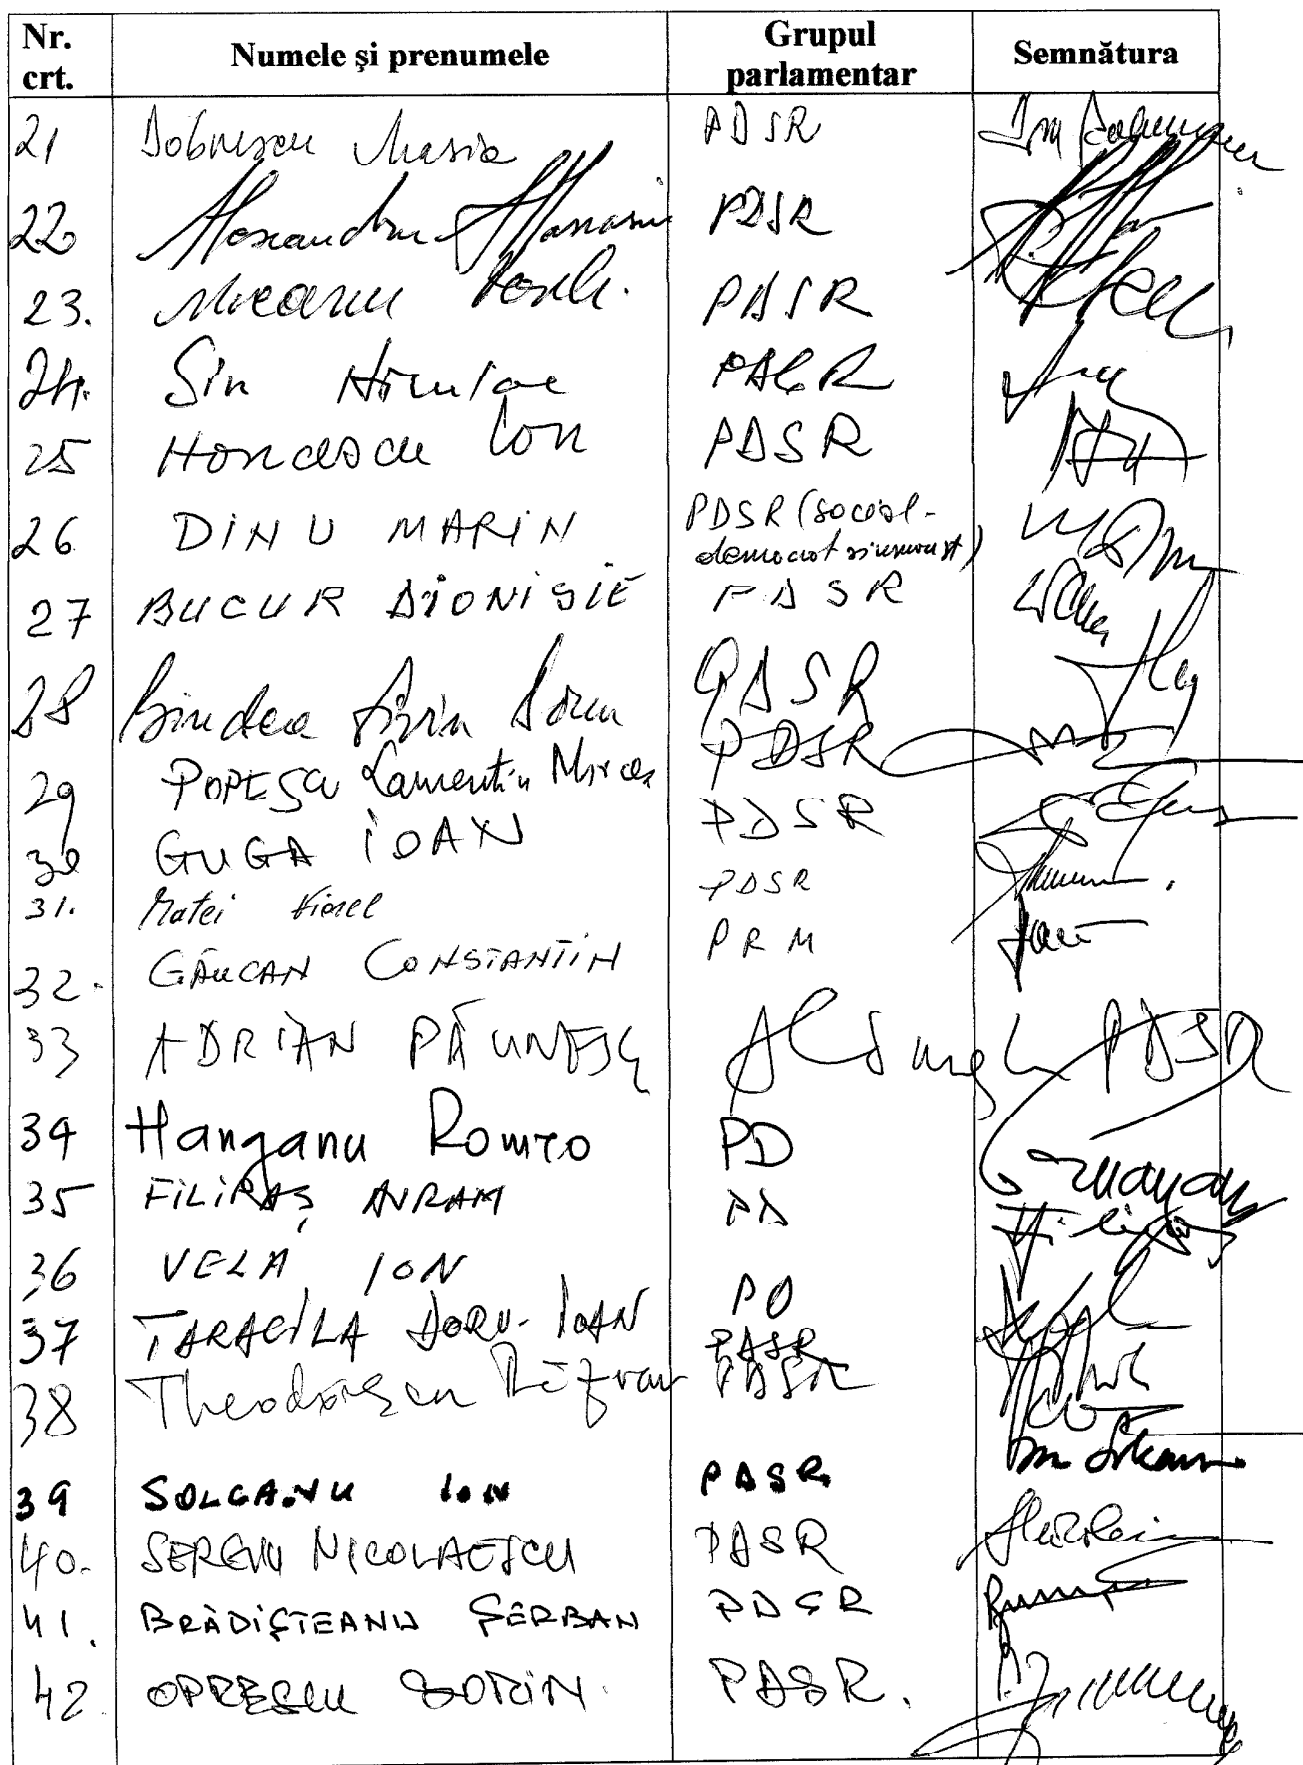 Nr. crt. Numele şi prenumele Grupul parlamentar Semnătura
21 Dobrescu Maria PDSR
22 Alexandru Athanasiu PDSR
23. Mocanu Vasile. PDSR
24. Sin Niculae PDSR
25 Honcescu Ion PDSR
26 DINU MARIN PDSR (social-
democrat și umanist)
27 BUCUR DIONISIE PDSR
28 Bindea Liviu Doru PDSR
29 POPESCU Laurentiu Mircea PDSR
30 GUGA IOAN PDSR
31. Matei Viorel PDSR
32. GĂUCAN CONSTANTIN PRM
33 ADRIAN PĂUNESCU PDSR
34 Hanganu Romeo PD
35 FILIPAȘ AVRAM PD
36 VELA ION PD
37 TARACILA DORU-IOAN PDSR
38 Theodorescu Răzvan PDSR
39 SOLCANU ION PDSR
40. SERGIU NICOLAESCU PDSR
41. BRĂDIȘTEANU ȘERBAN PDSR
42. OPRESCU SORIN. PDSR.